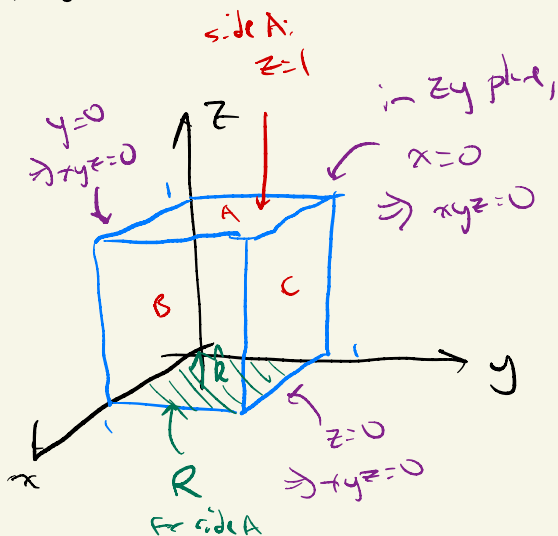 side A:
z=1
in zy plane,
x=0
⇒ xyz=0
y=0
⇒ xyz=0
z
1
A
B
C
k̂
1
y
1
x
z=0
⇒ xyz=0
R
for side A